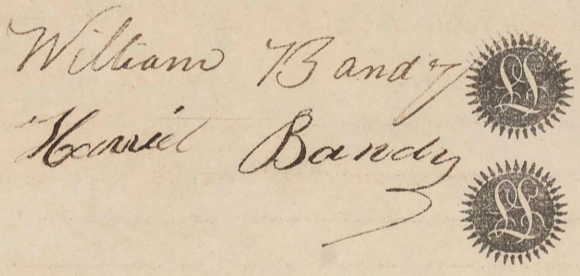 William Bandy LS
Harriet Bandy LS